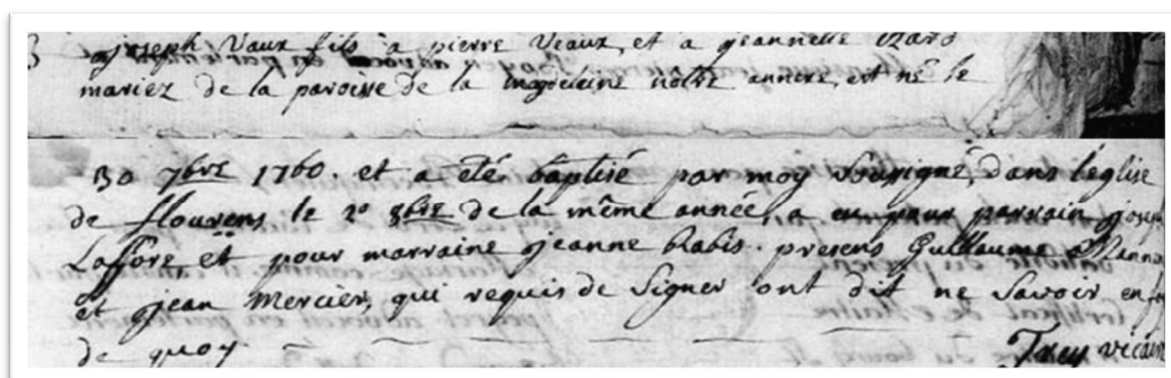 joseph Vaux fils a pierre Veaux, et a jeannette
mariez de la paroisse de la magdelaine notre annexe, est né le
30 7bre 1760. et a été baptisé par moy soussigné, dans l'eglise
de flourens le 2e 8bre de la même année, a eu pour parrain
Laffore, et pour marraine jeanne Rabis. presens Guillaume
et jean Mercier, qui requis de signer ont dit ne savoir en
de quoy